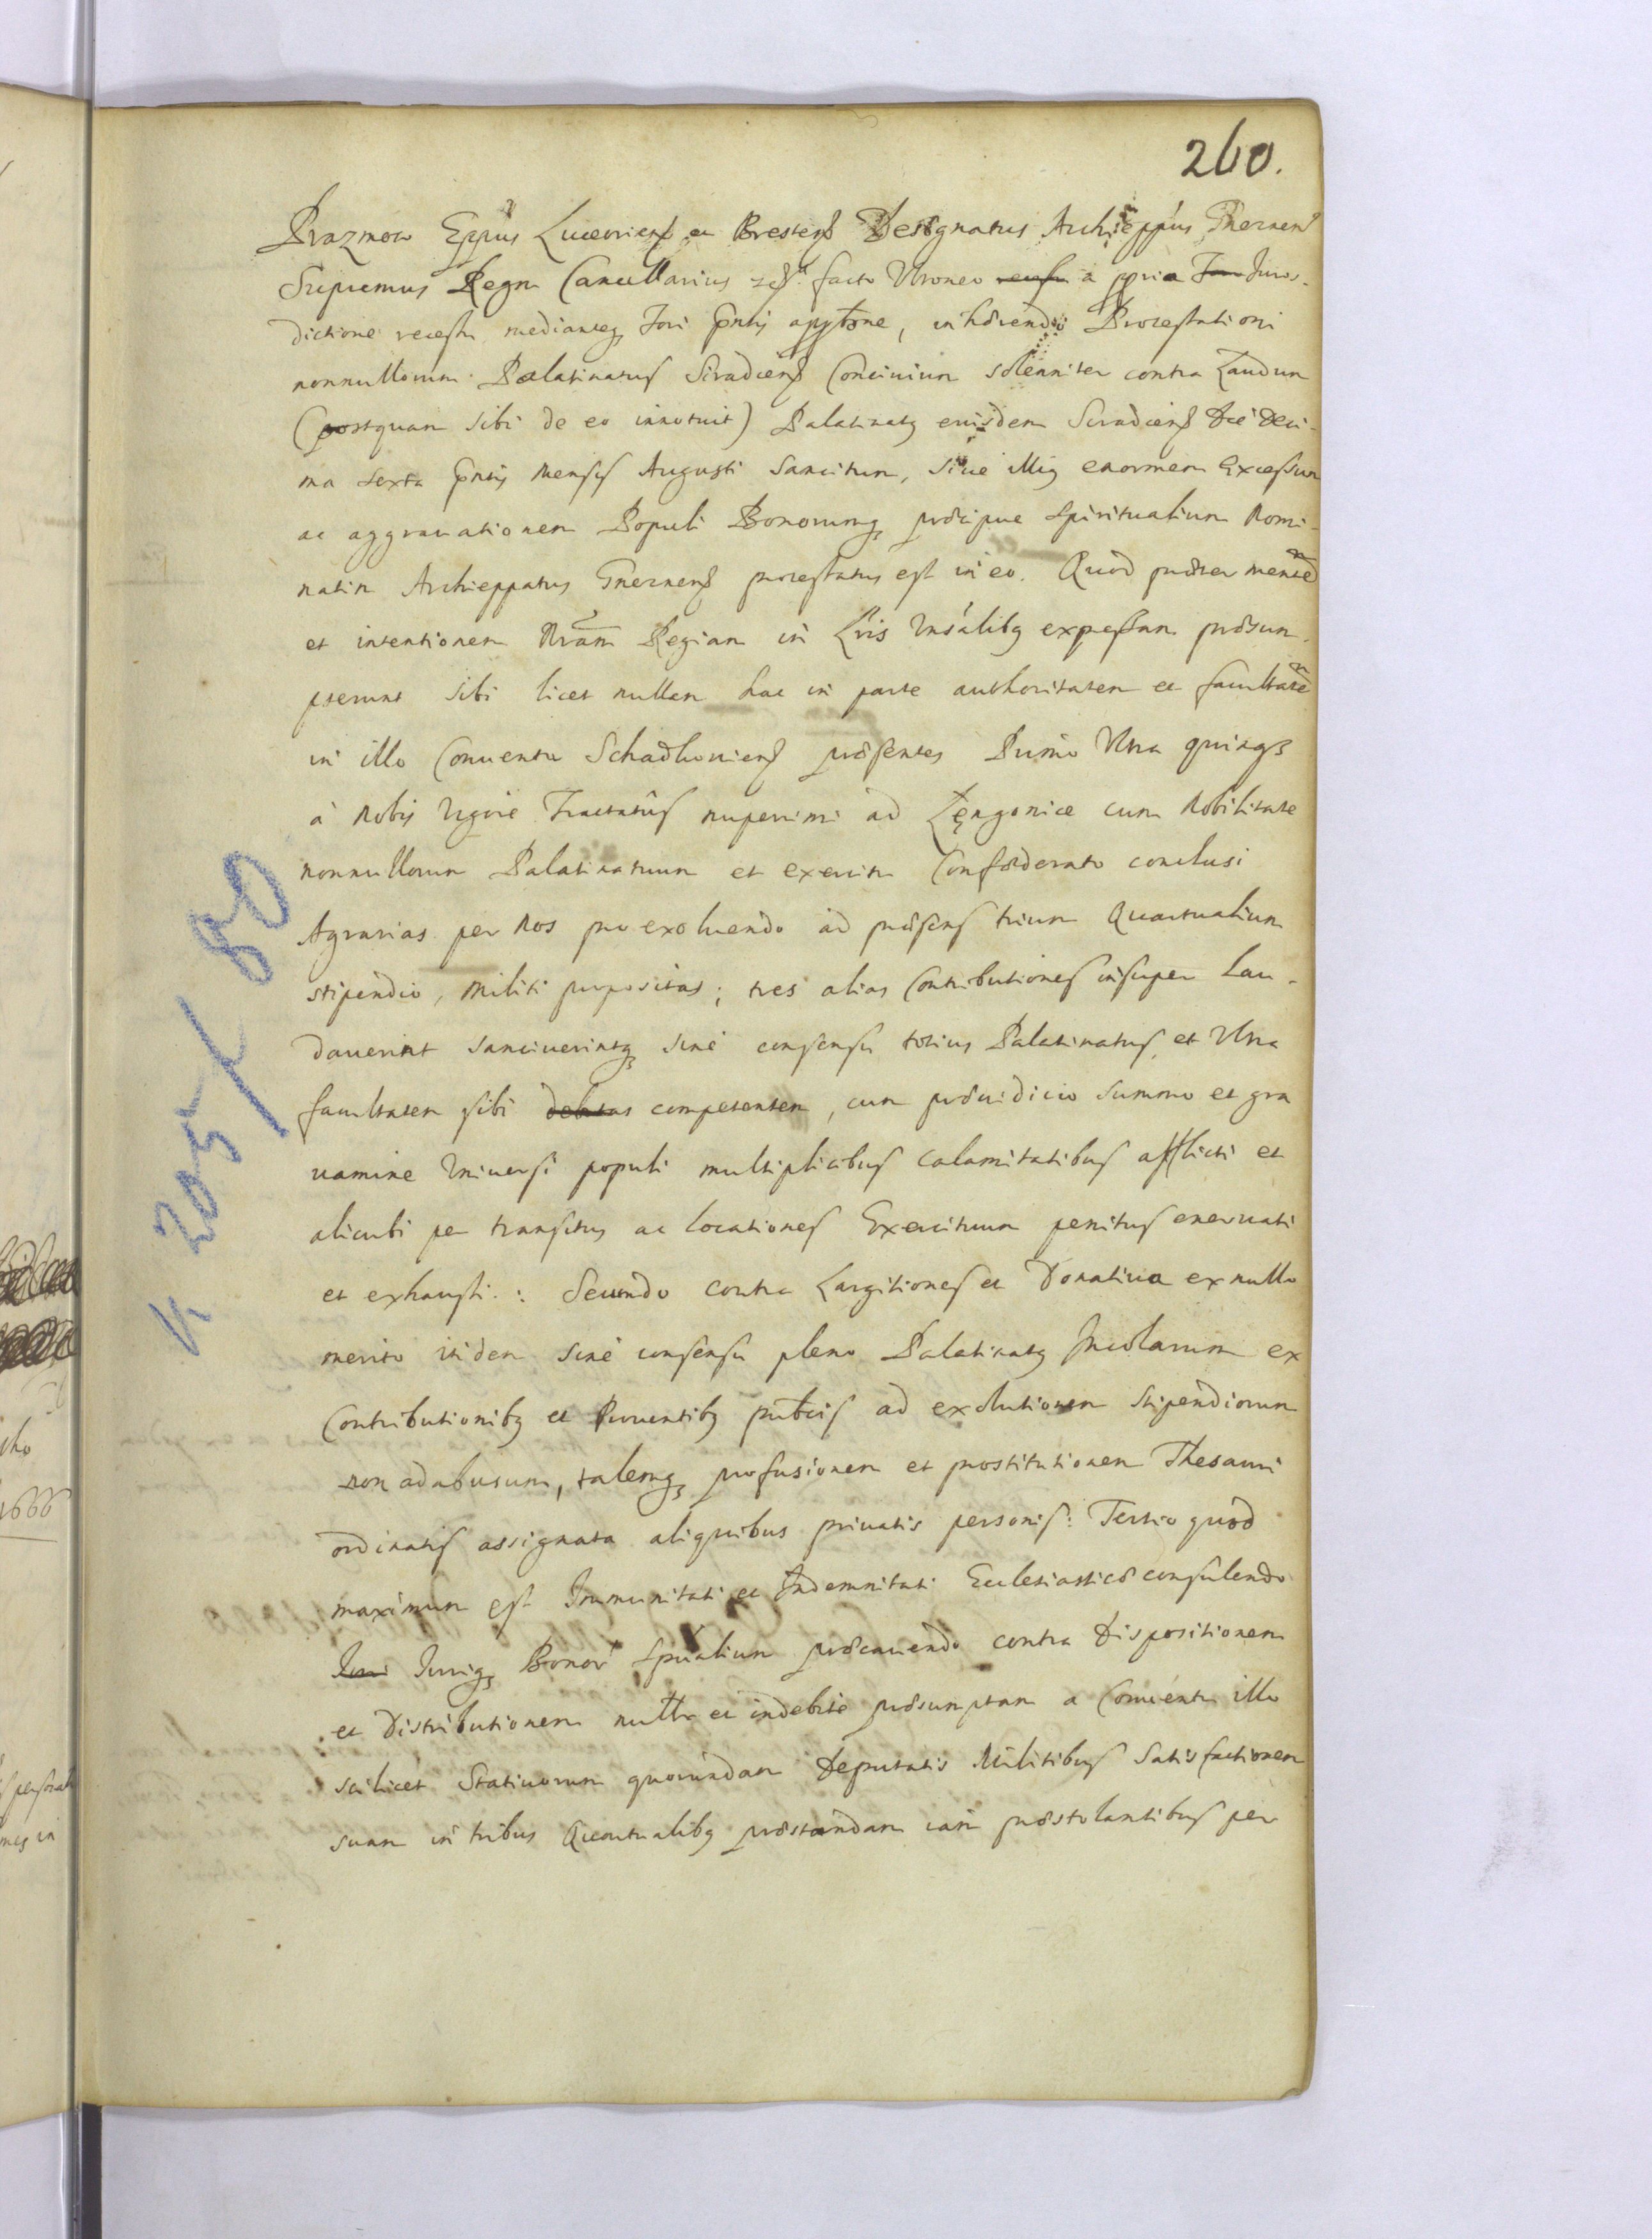 260.
Prazmow Eppūs Luceoriens et Brestens Designatus Archieppūs Gneznens
Supremus Regni Cancellarius facto Vltroneo a ppria Juris-
dictione recessu medianteq Fori pntis apptōne, inhærendo Protestationi
nonnullorum Palatinatus Siradiens Concivium solenniter contra Laudum
(postquam sibi de eo innotuit) Palatinatg eiusdem Siradiens Die Deci-
ma sexta pntis mensis Augusti sancitum, sive illig enormem Excessum
ac aggrauationem Populi Bonorumq præcipue spiritualium Nomi-
natim Archieppatus Gneznens protestatus est in eo. Quod præter mentē
et intentionem Nrām Regiam in Lris Vnsālibg expressam præsum-
pserunt sibi licet nullam hac in parte authoritatem et facultatē
in illo Conuentu Schadkouiens præsentes Primo Vltra quinqz
à Nobis vigore Tractatûs nuperrimi ad Łęngonice cum Nobilitate
nonnullorum Palatinatuum et exercitu Confæderato conclusi
Agrarias per Nos pro exoluendo ad præsens trium Quartualium
stipendio, militi propositas; tres alias Contributiones insuper Lau-
dauerint sanciuerintq sine consensu totius Palatinatus et Vltra
facultatem sibi debitas competentem, cum præiudicio summo et gra
uamine Vniuersi populi multiplicibus calamitatibus afflicti et
alicubi per transitus ac locationes Exercituum penitus eneruati
et exhausti.: Secundo contra Largitiones et Donatiua ex nullo
merito itidem sine consensu pleno Palatinatg Incolarum ex
Contributionibg et Prouentibg publcis ad exolutionem stipendiorum
non ad abusum, talemq profusionem et prostitutionem Thesauri
ordinatis assignata aliquibus priuatis personis: Tertio quod
maximum est Immunitati et Indemnitati Ecclesiasticæ consulendo
Juri Juriq Bonor spūalium præcauendo contra Dispositionem
et Distributionem nullr et indebite præsumptam a Conuentu illo
scilicet Statiuorum quorundam Deputatis Militibus satisfactionem
suam in tribus Quartualibg præstandam iam præstolantibus per
1666